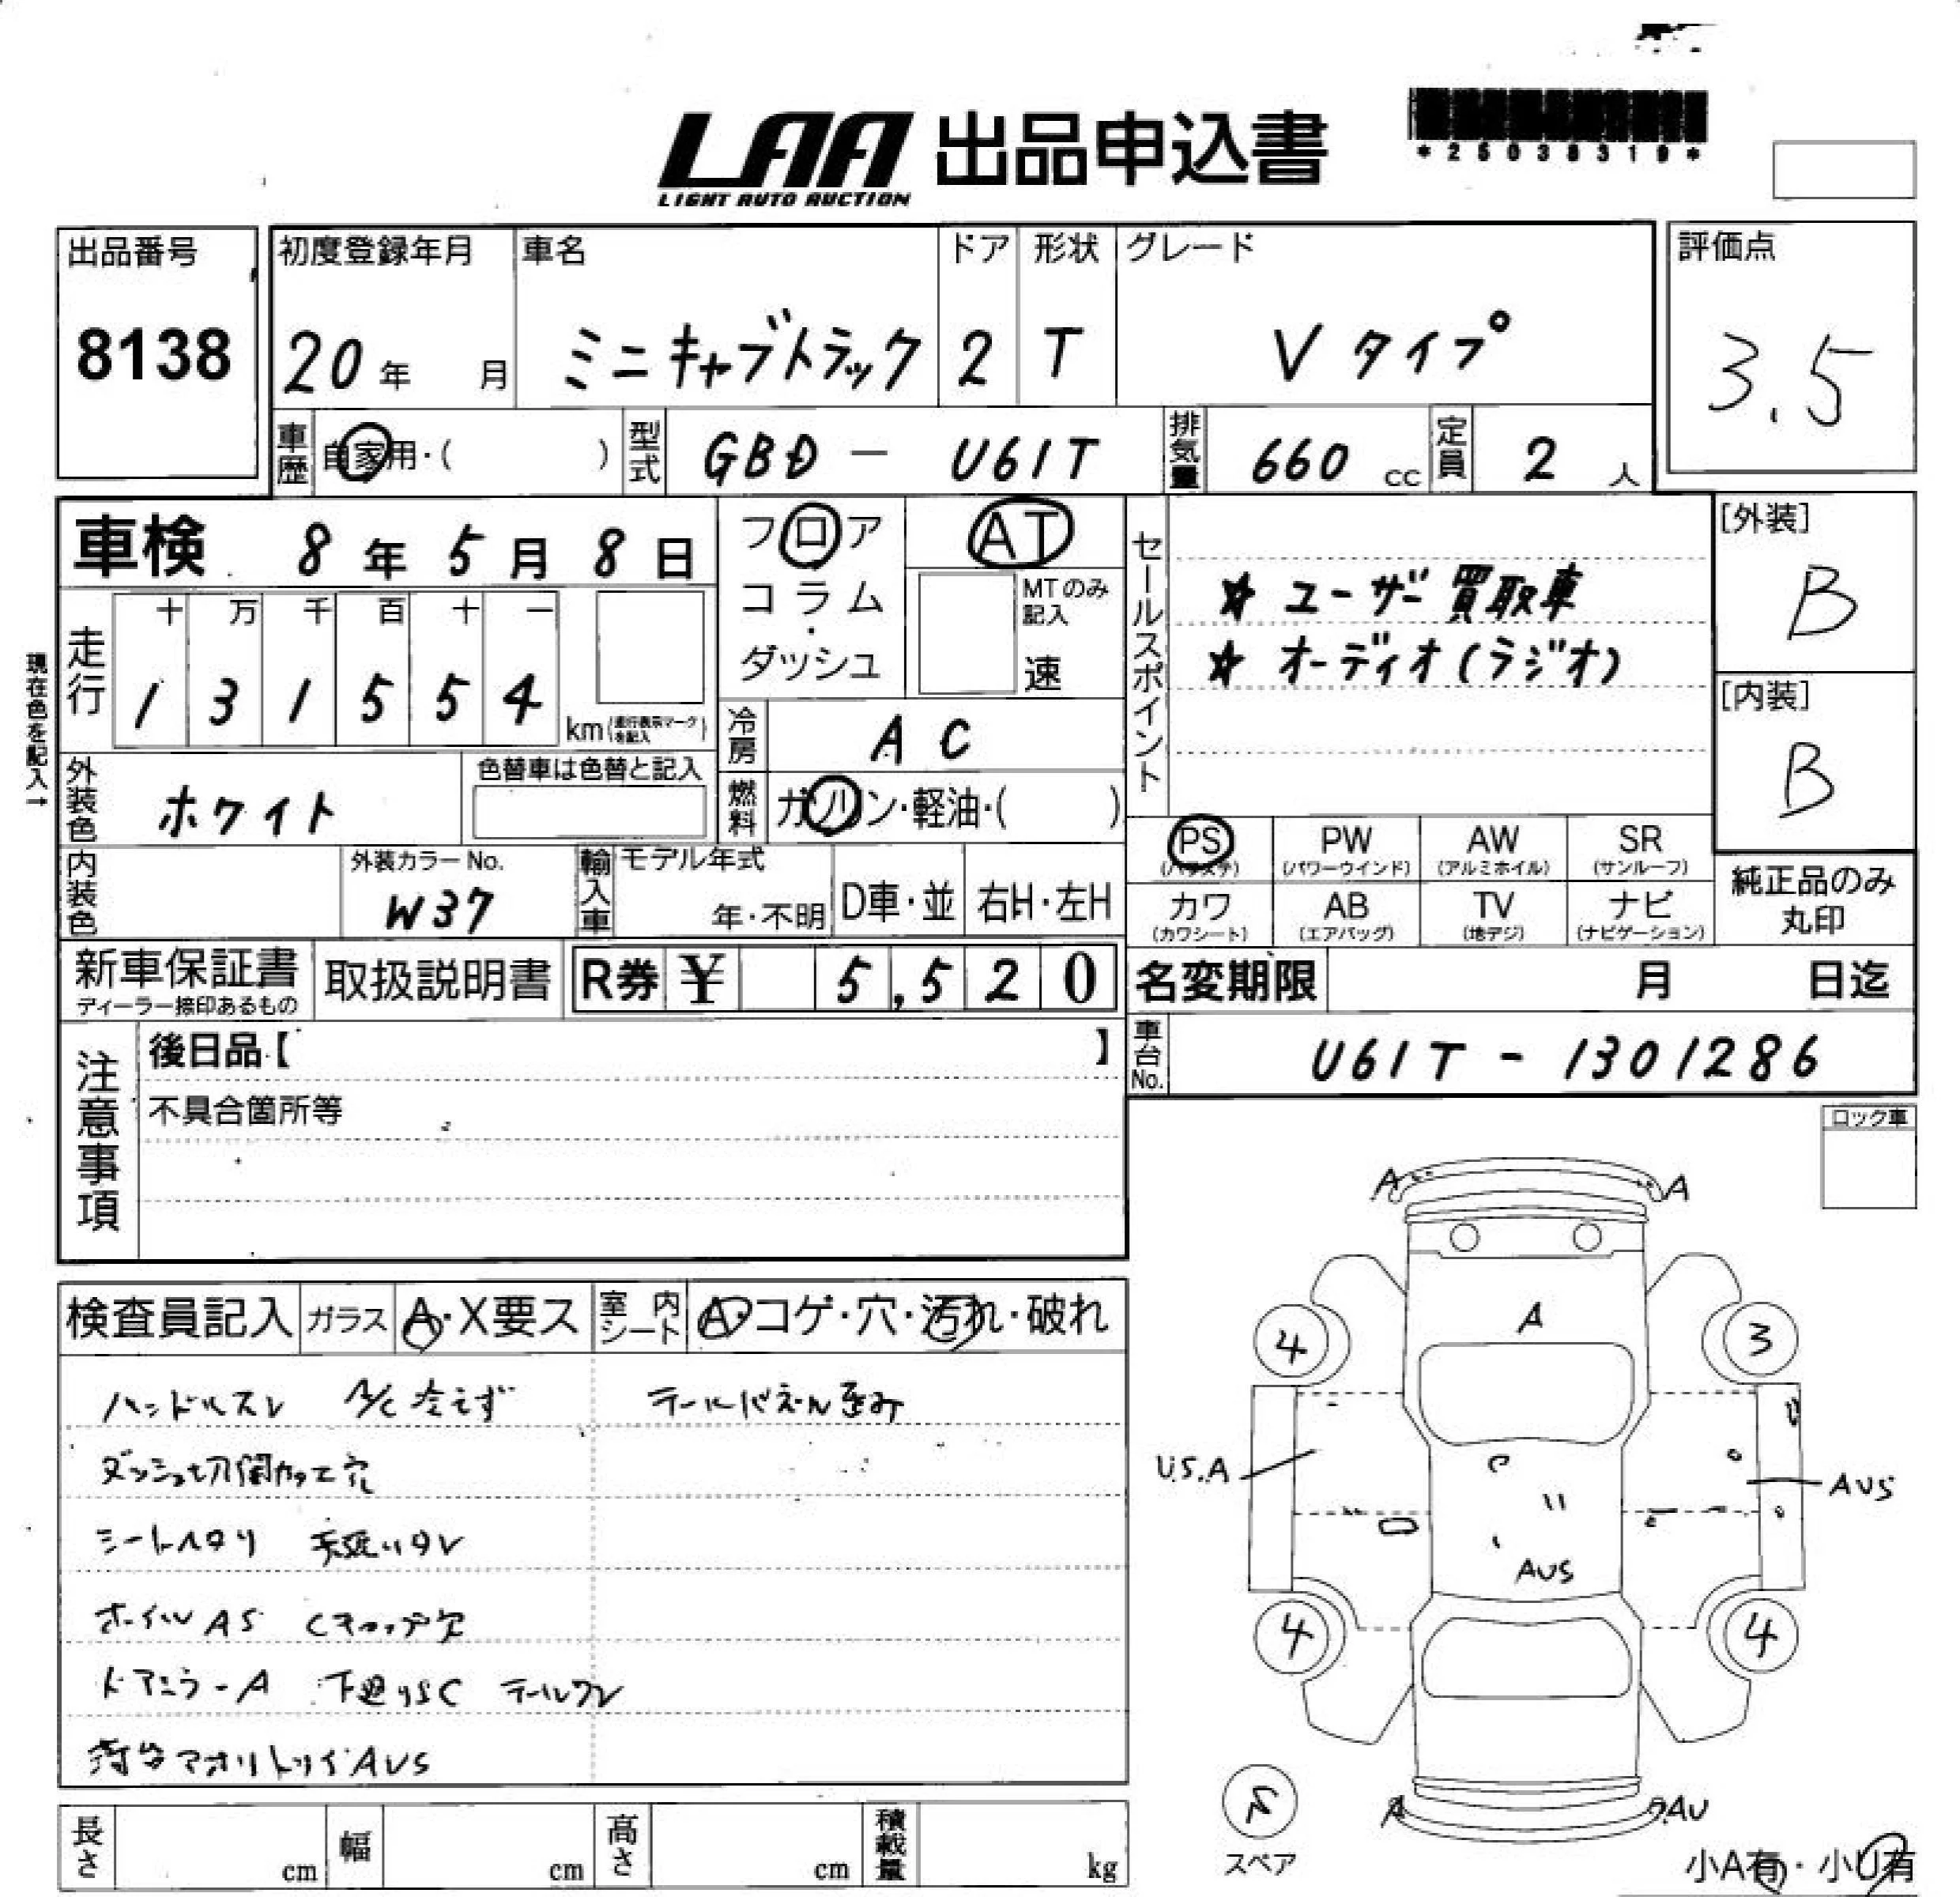 LAA 出品申込書
LIGHT AUTO AUCTION
*25038319*
出品番号
8138
初度登録年月
20年 月
車名
ミニキャブトラック
ドア
2
形状
T
グレード
Vタイプ
評価点
3.5
車歴 自家用・( )
型式 GBD - U61T
排気量 660 cc
定員 2 人
車検 8年5月8日
フロア
コラム
・
ダッシュ
AT
MTのみ記入
速
セールスポイント
☆ ユーザー買取車
☆ オーディオ(ラジオ)
[外装]
B
[内装]
B
現在色を記入→
走行
十 万 千 百 十 一
1 3 1 5 5 4 km (走行表示マークを記入)
冷房 AC
燃料 ガソリン・軽油・( )
外装色 ホワイト
色替車は色替と記入
PS (パワステ)
PW (パワーウインド)
AW (アルミホイル)
SR (サンルーフ)
カワ (カワシート)
AB (エアバッグ)
TV (地デジ)
ナビ (ナビゲーション)
純正品のみ
丸印
内装色
外装カラーNo.
W37
輸入車
モデル年式
年・不明
D車・並
右H・左H
新車保証書
ディーラー捺印あるもの
取扱説明書
R券 ¥ 5,520
名変期限 月 日迄
車台No. U61T - 1301286
注意事項
後日品【 】
不具合箇所等
ロック車
検査員記入
ガラス A・X要ス
室内シート A・コゲ・穴・汚れ・破れ
ハンドルスレ A/C冷えず テールパネル歪み
ダッシュ切開カッテ穴
シートヘタリ
ホイルAS Cキャップ欠
ドアミラーA 下廻りSC テールワレ
荷台アオリトリイAUS
A A
A
4 3
U.S.A
AUS
AUS
4 4
A AU
スペア
小A有・小U有
長さ cm
幅 cm
高さ cm
積載量 kg